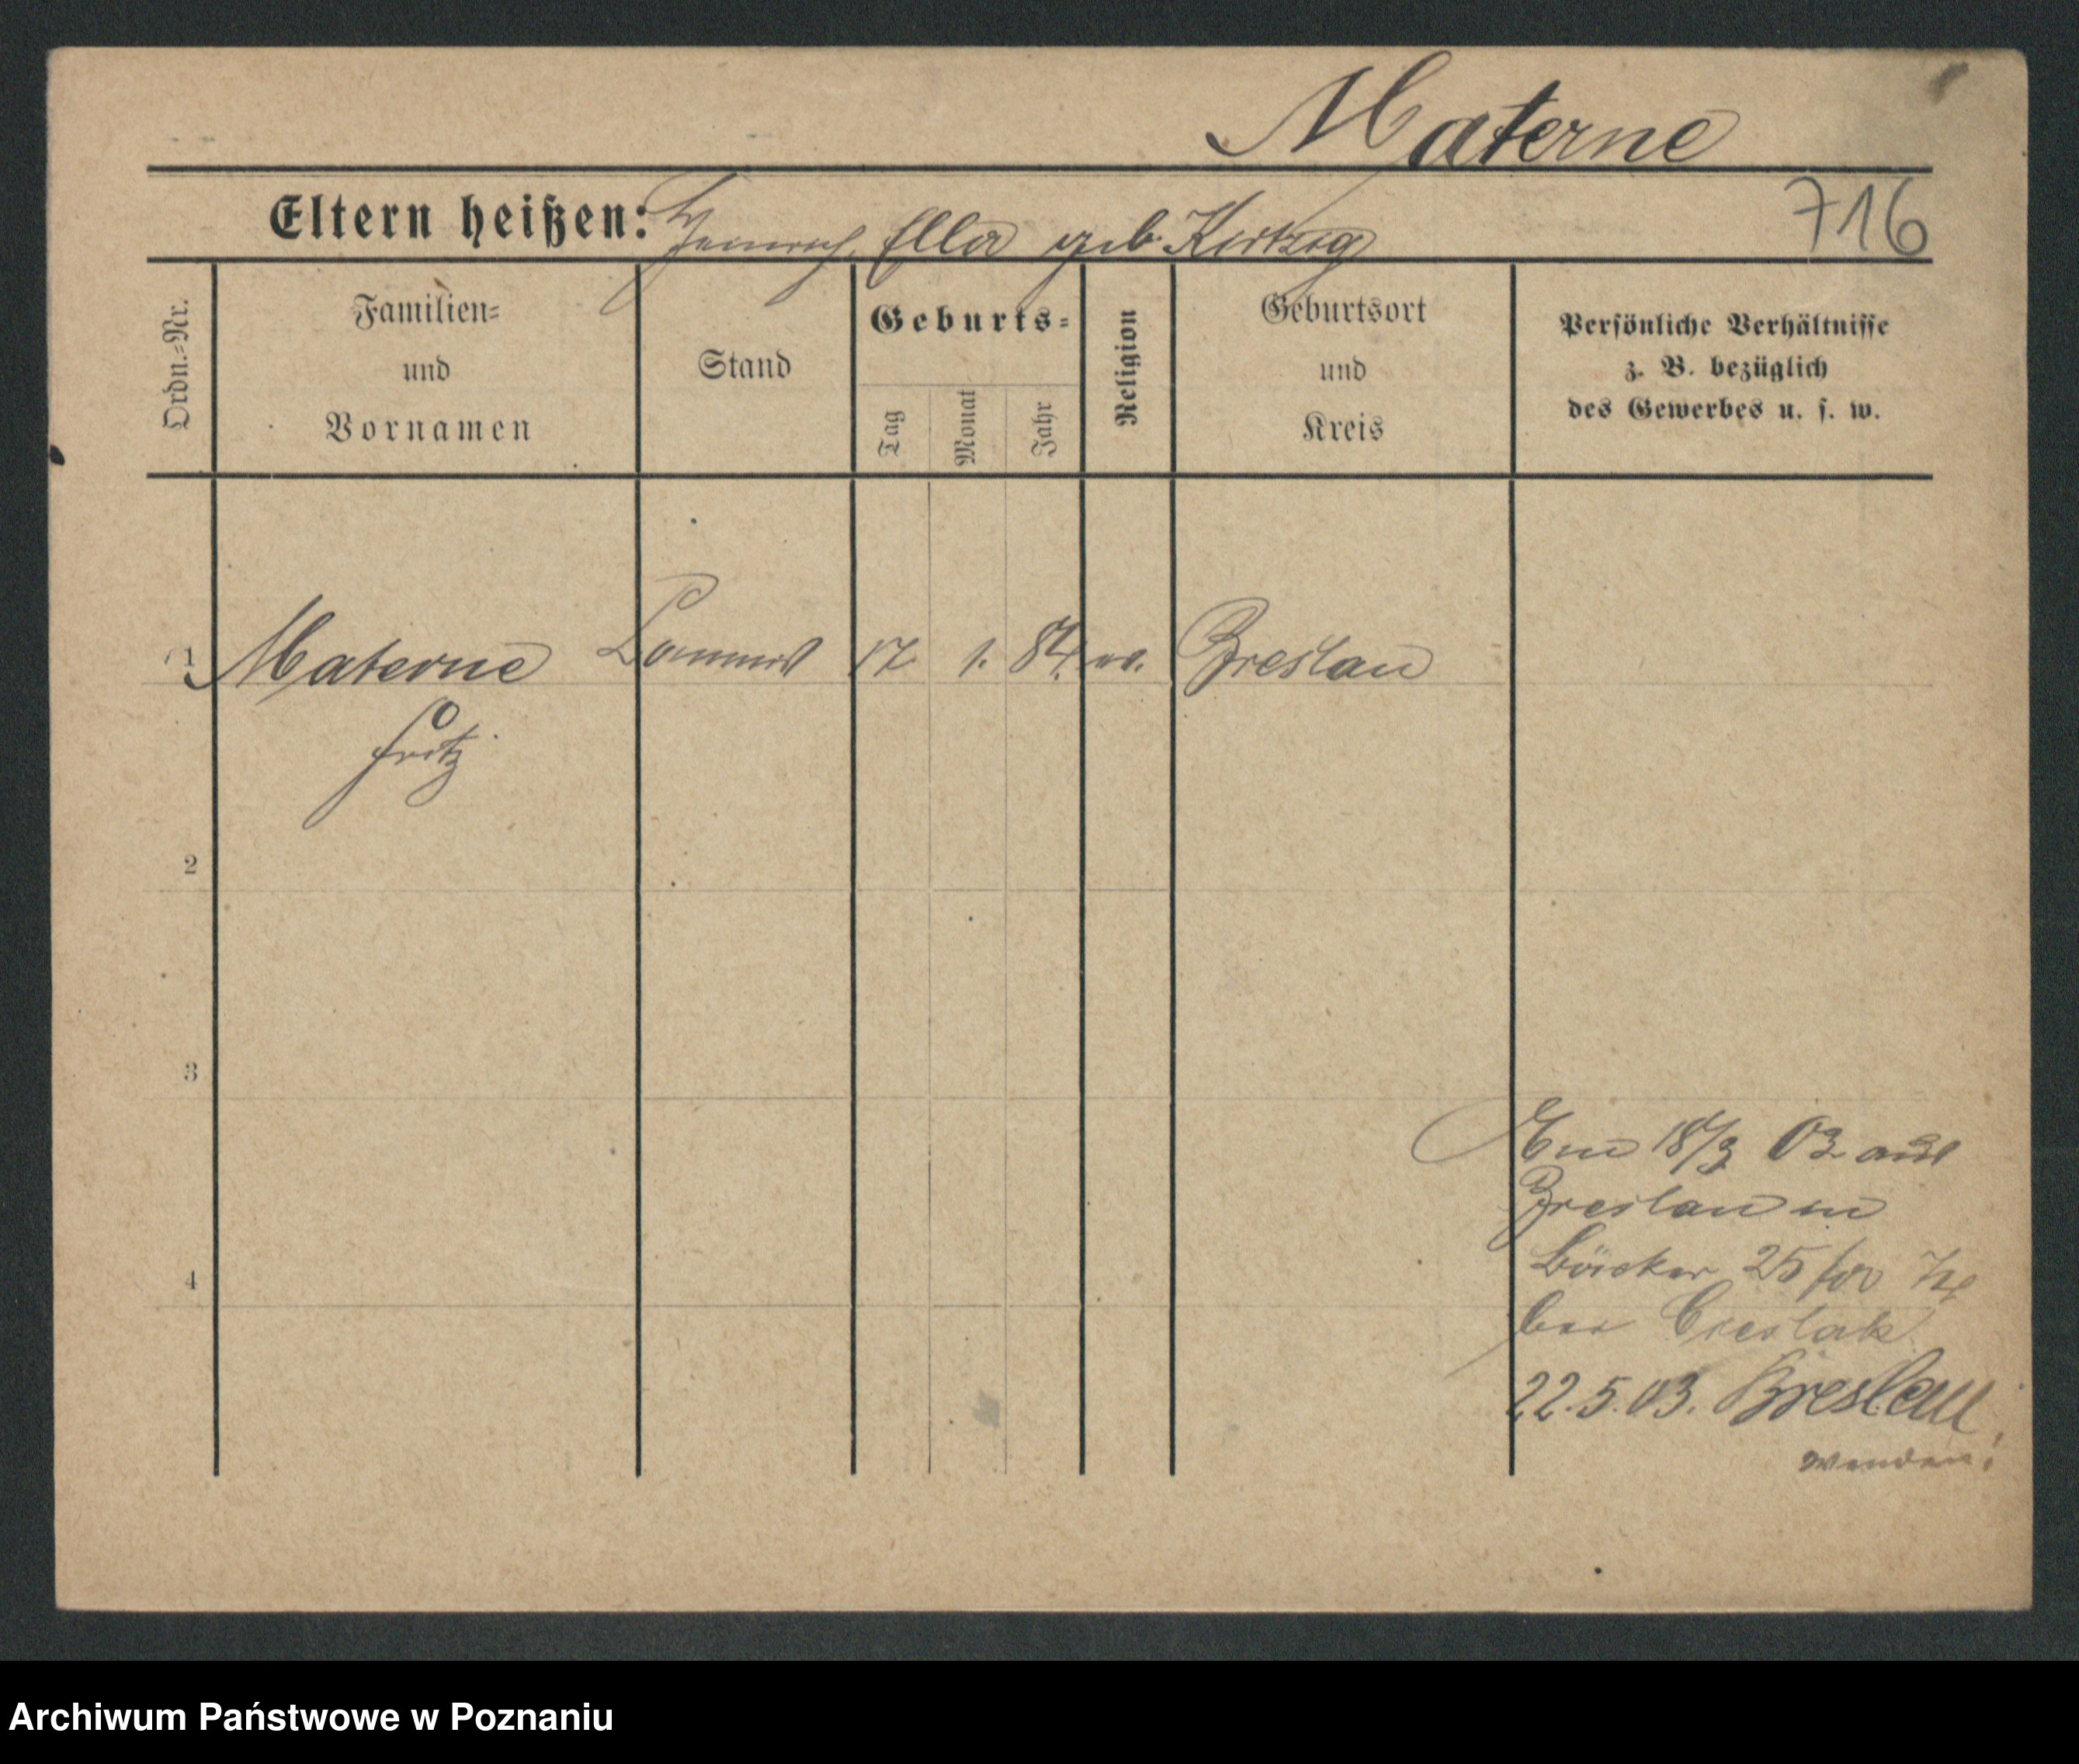 Materne
716
Eltern heißen: Heinrich, Ella geb. Kirtzig
Ordn.=Nr.
Familien=
und
Vornamen
Stand
Geburts=
Tag
Monat
Jahr
Religion
Geburtsort
und
Kreis
Persönliche Verhältnisse
z. B. bezüglich
des Gewerbes u. s. w.
1 Materne 17. 1. 84. Breslau
Fritz
2
3
4
18/3 03 aus
Breslau in
Bäcker 25
bei Cieslak
22.5.03. Breslau
wenden!
Archiwum Państwowe w Poznaniu